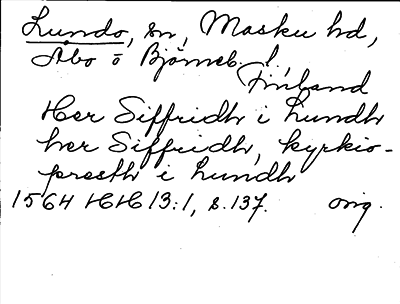 Lundo, sn, Masku hd,
Åbo o Björneb. l.,
Finland
Her Siffridh i Lundh
her Siffridh, kyrkio-
presth i Lundh
1564 HH 13:1, s. 137. orig.